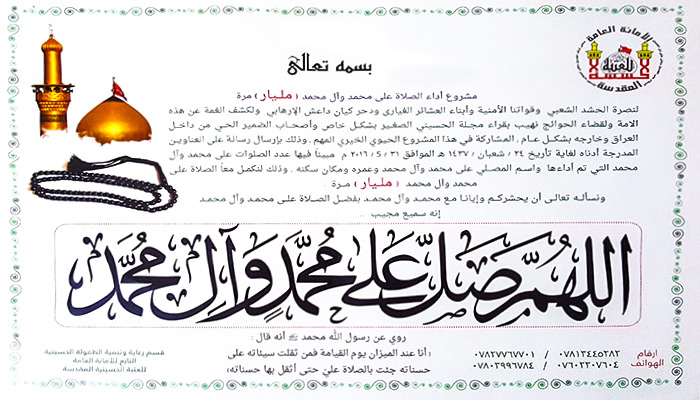 الامانة العامة
للعتبة
الحسينية
المقدسة
بسمه تعالى
مشروع أداء الصلاة على محمد وآل محمد (مليار) مرة
لنصرة الحشد الشعبي وقواتنا الأمنية وأبناء العشائر الغيارى ودحر كيان داعش الإرهابي ولكشف الغمة عن هذه
الامة ولقضاء الحوائج نهيب بقراء مجلة الحسيني الصغير بشكل خاص وأصحاب الضمير الحي من داخل
العراق وخارجه بشكل عام . المشاركة في هذا المشروع الحيوي الخيري المهم . وذلك بإرسال رسالة على العناوين
المدرجة أدناه لغاية تأريخ ٢٤ / شعبان / ١٤٣٧ هـ الموافق ٣١ / ٥ / ٢٠١٦ م مبيناً فيها عدد الصلوات على محمد وآل
محمد التي تم أداءها واسم المصلي على محمد وآل محمد وعمره ومكان سكنه . وذلك لنكمل معاً الصلاة على
محمد وآل محمد (مليار) مرة .
ونسأله تعالى أن يحشركم وإيانا مع محمد وآل محمد بفضل الصلاة على محمد وآل محمد
إنه سميع مجيب .
اللهم صل على محمد وآل محمد
روي عن رسول الله محمد ﷺ أنه قال :
(أنا عند الميزان يوم القيامة فمن ثقلت سيئاته على
حسناته جئت بالصلاة عليّ حتى أثقل بها حسناته)
ارقام الهواتف
٠٧٨١٣٤٤٥٢٨٢ / ٠٧٨٢٧٧٦٧٧٠١
٠٧٦٠٢٣٠٧٦٠٤ / ٠٧٨٠٣٩٩٦٧٨٤
قسم رعاية وتنمية الطفولة الحسينية
التابع للأمانة العامة
للعتبة الحسينية المقدسة